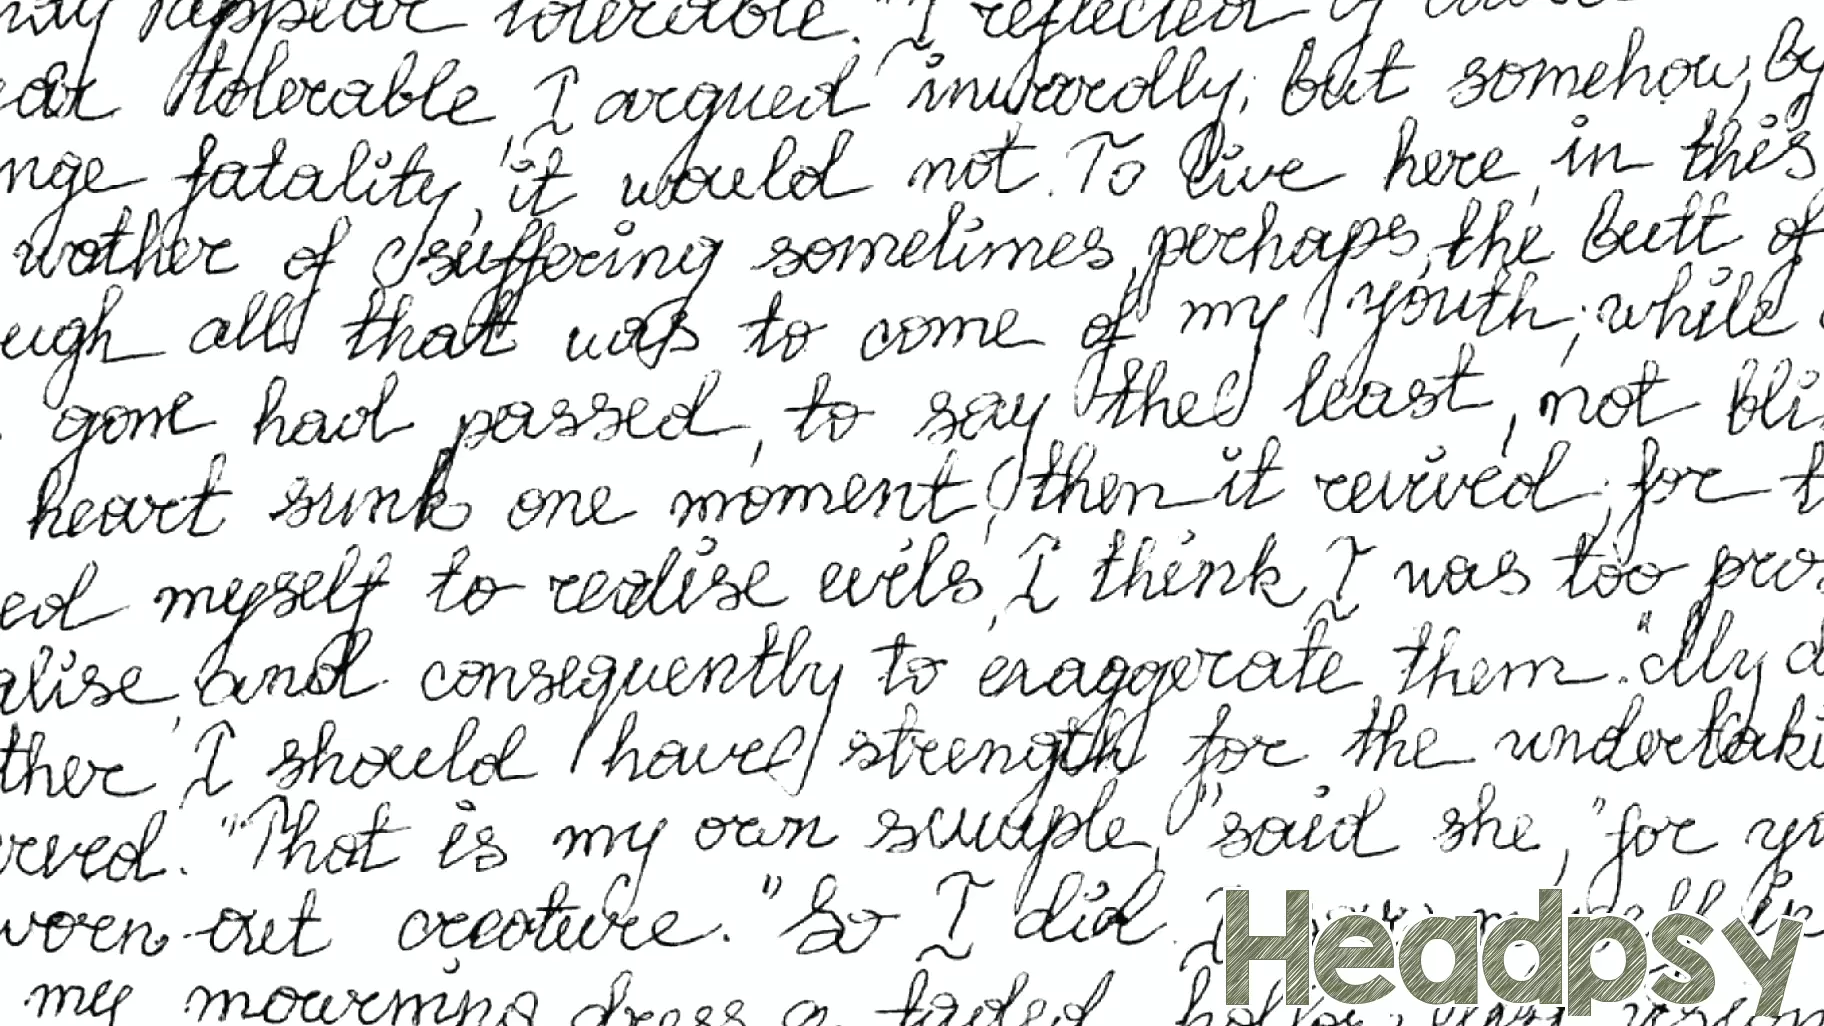 may appear tolerable." I reflected of course
ear tolerable, I argued inwardly; but somehow, by
nge fatality, it would not. To live here, in this
wather of suffering sometimes, perhaps, the butt of
ugh all that was to come of my youth; while
gone had passed, to say the least, not bli
heart sunk one moment, then it revived; for t
ed myself to realise evils, I think I was too pros
alise, and consequently to exaggerate them. "My d
ther I should have strength for the undertaki
rved. "That is my own scruple," said she, "for yo
worn-out creature." So I did. I
my mourning dress, a faded hollow
Headpsy